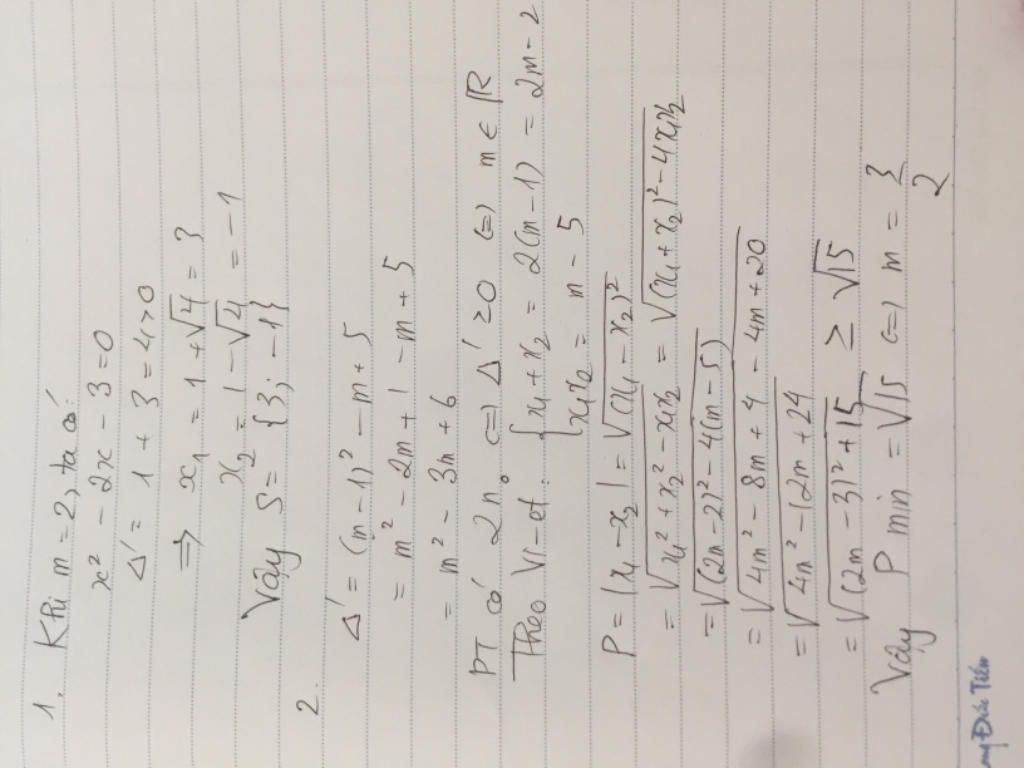 1. Khi m = 2, ta có:
x² - 2x - 3 = 0
Δ' = 1 + 3 = 4 > 0
⇒ x₁ = 1 + √4 = 3
x₂ = 1 - √4 = -1
Vậy S = {3; -1}
2.
Δ' = (m - 1)² - m + 5
= m² - 2m + 1 - m + 5
= m² - 3m + 6
PT có 2n⁰ <=> Δ' ≥ 0 <=> m ∈ R
Theo Vi-et: { x₁ + x₂ = 2(m - 1) = 2m - 2
x₁x₂ = m - 5
P = |x₁ - x₂| = √(x₁ - x₂)²
= √x₁² + x₂² - x₁x₂ = √(x₁ + x₂)² - 4x₁x₂
= √(2m - 2)² - 4(m - 5)
= √4m² - 8m + 4 - 4m + 20
= √4m² - 12m + 24
= √(2m - 3)² + 15 ≥ √15
Vậy P min = √15 <=> m = 3/2
Đức Tiến